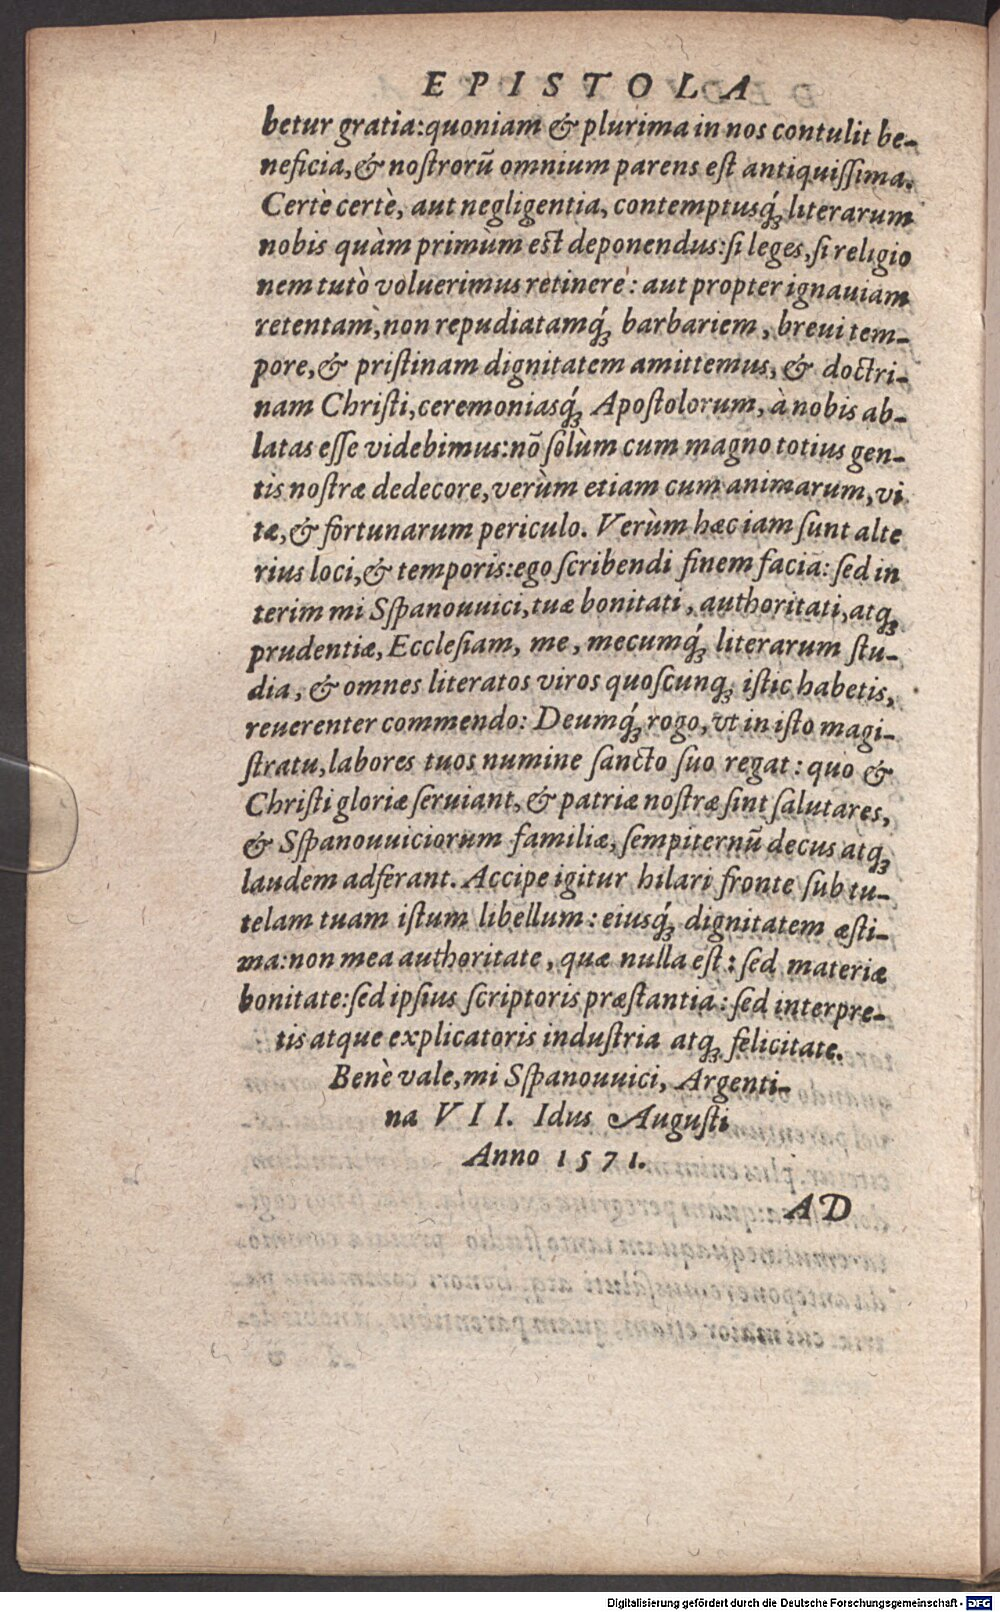 EPISTOLA
betur gratia: quoniam & plurima in nos contulit be-
neficia, & noſtrorũ omnium parens eſt antiquiſſima.
Certè certè, aut negligentia, contemptusq́ꝫ literarum
nobis quàm primùm est deponendus: ſi leges, ſi religio
nem tutò voluerimus retinere: aut propter ignauiam
retentam, non repudiatamq́ꝫ barbariem, breui tem-
pore, & priſtinam dignitatem amittemus, & doctri-
nam Chriſti, ceremoniasq́ꝫ Apoſtolorum, à nobis ab-
latas eſſe videbimus: nõ ſolùm cum magno totius gen-
tis noſtræ dedecore, verùm etiam cum animarum, vi
tæ, & fortunarum periculo. Verùm hæc iam ſunt alte
rius loci, & temporis: ego ſcribendi finem faciã: ſed in
terim mi Sſpanouuici, tuæ bonitati, authoritati, atqꝫ
prudentiæ, Eccleſiam, me, mecumq́ꝫ literarum ſtu-
dia, & omnes literatos viros quoſcunqꝫ iſtic habetis,
reuerenter commendo: Deumq́ꝫ rogo, vt in iſto magi-
ſtratu, labores tuos numine ſancto ſuo regat: quo &
Chriſti gloriæ ſeruiant, & patriæ noſtræ ſint ſalutares,
& Sſpanouuiciorum familiæ, ſempiternũ decus atqꝫ
laudem adferant. Accipe igitur hilari fronte ſub tu-
telam tuam iſtum libellum: eiusq́ꝫ dignitatem æſti-
ma: non mea authoritate, quæ nulla eſt: ſed materiæ
bonitate: ſed ipſius ſcriptoris præſtantia: ſed interpre-
tis atque explicatoris induſtria atqꝫ felicitate.
Benè vale, mi Sſpanouuici, Argenti-
na VII. Idus Auguſti
Anno 1571.
AD
Digitalisierung gefördert durch die Deutsche Forschungsgemeinschaft - DFG